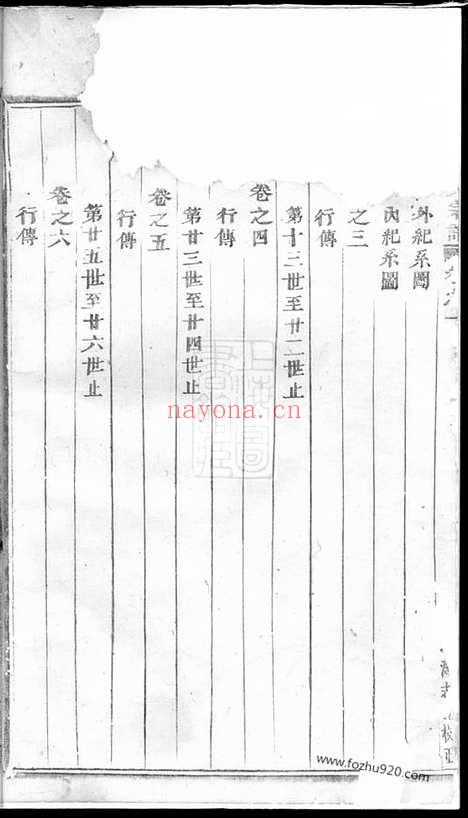 外紀系圖
內紀系圖
之三
行傳
第十三世至廿二世止
卷之四
行傳
第廿三世至廿四世止
卷之五
行傳
第廿五世至廿六世止
卷之六
行傳
nayona.cn
www.fozhu920.com